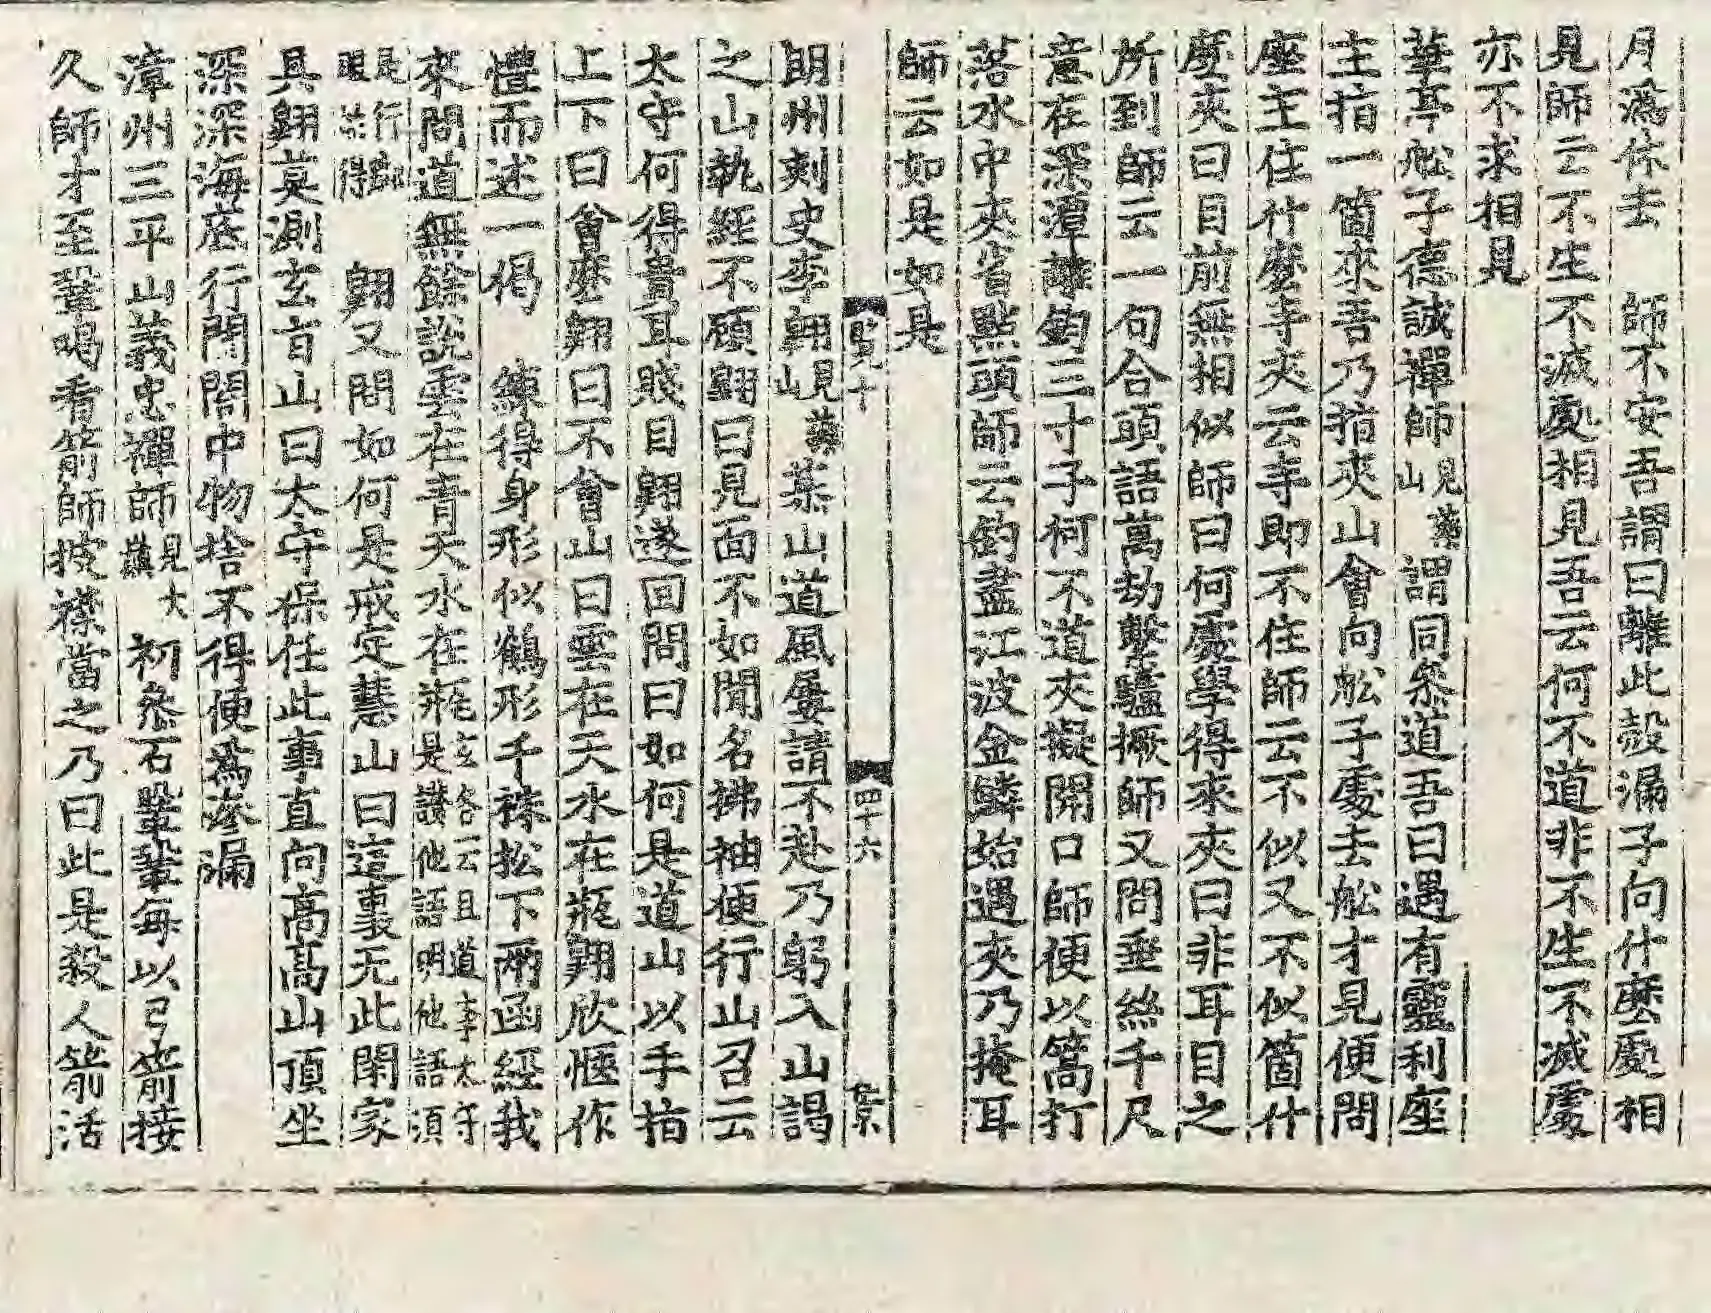 月為你去　師不安吾謂曰離此殼漏子向什麽處相
見師云不生不滅處相見吾云何不道非不生不滅處
亦不求相見
華亭舩子德誠禪師見藥山謂同叅道吾曰遇有靈利座
主指一箇來吾乃指夾山會向舩子處去舩才見便問
座主住什麽寺夾云寺即不住師云不似又不似箇什
麽夾曰目前無相似師曰何處學得來夾曰非耳目之
所到師云一句合頭語萬劫繫驢橛師又問垂絲千尺
意在深潭離鉤三寸子何不道夾擬開口師便以篙打
落水中夾省點頭師云釣盡江波金鱗始遇夾乃掩耳
師云如是如是
四十六
朗州刺史李翱見藥山藥山道風屢請不赴乃躬入山謁
之山執經不顧翱曰見面不如聞名拂袖便行山召云
太守何得貴耳賤目翱遂回問曰如何是道山以手指
上下曰會麽翱曰不會山曰雲在天水在瓶翱欣愜作
禮而述一偈　練得身形似鶴形千株松下兩函經我
來問道無餘說雲在青天水在瓶玄各云且道李太守是讚他語明他語須
是行脚眼始得　翱又問如何是戒定慧山曰這裏无此閑家
具翱莫測玄旨山曰太守保任此事直向高高山頂坐
深深海底行閨閤中物捨不得便為滲漏
漳州三平山義忠禪師見大顚初叅石鞏鞏每以弓箭接
久師才至鞏喝看箭師披襟當之乃曰此是殺人箭活